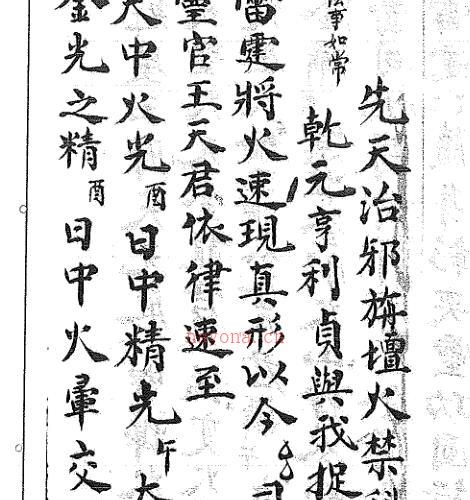 先天治邪旃壇火禁
事如常 乾元亨利貞與我捉
雷霆將火速現真形以今
官王天君依律速至
中火光酉日中精光午
金光之精酉日中火暈交
nayona.cn